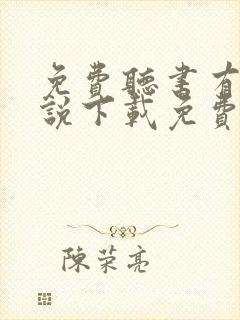 免費聽書有
說下載免費
陳荣亮